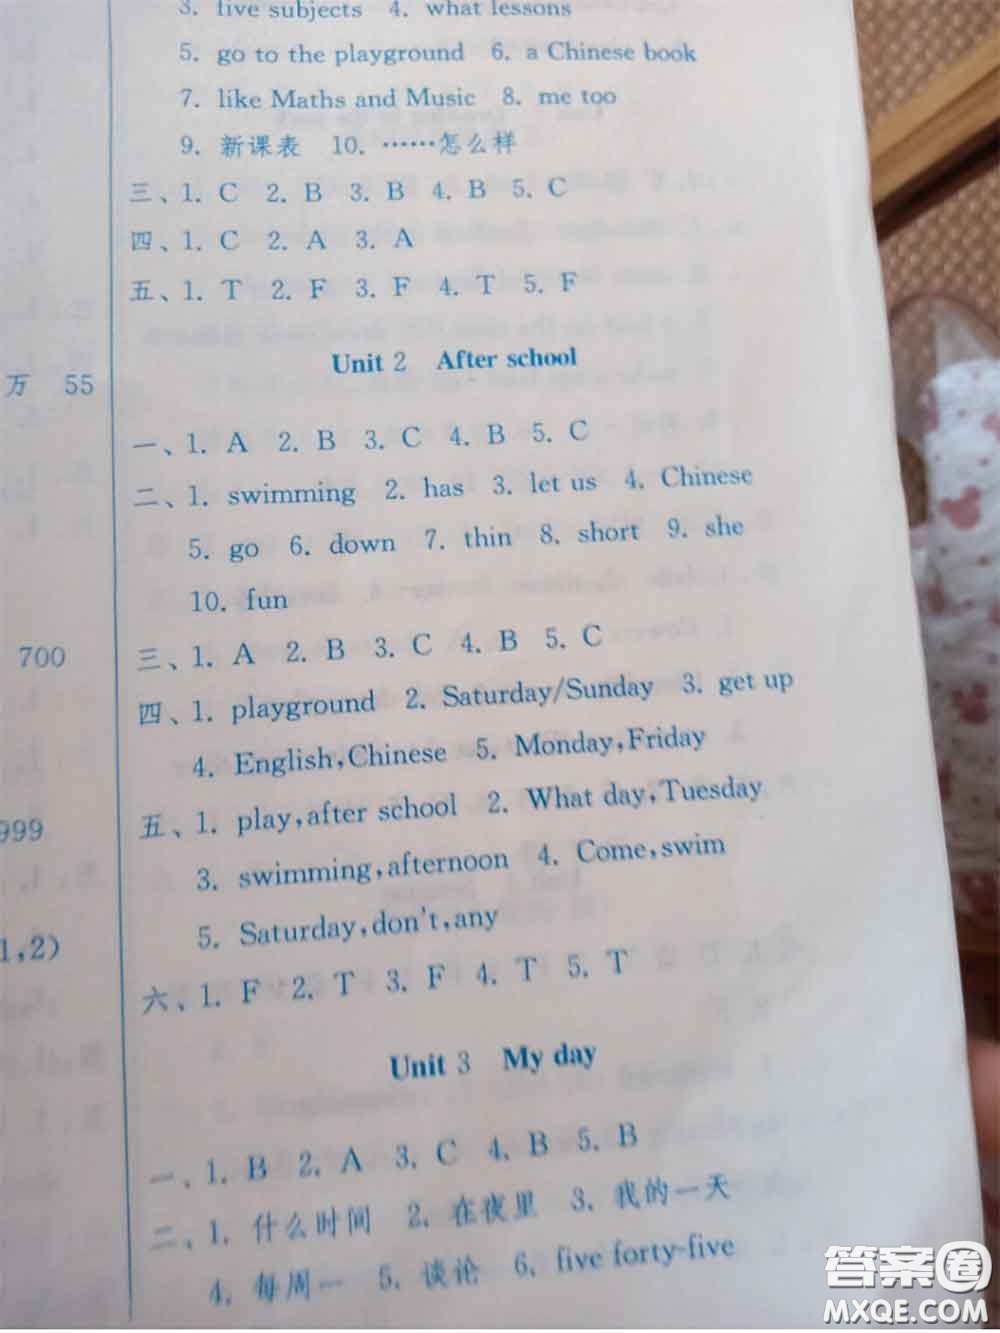 3. five subjects 4. what lessons
5. go to the playground 6. a Chinese book
7. like Maths and Music 8. me too
9. 新课表 10. ……怎么样
三、1. C 2. B 3. B 4. B 5. C
四、1. C 2. A 3. A
五、1. T 2. F 3. F 4. T 5. F
Unit 2 After school
万 55
一、1. A 2. B 3. C 4. B 5. C
二、1. swimming 2. has 3. let us 4. Chinese
5. go 6. down 7. thin 8. short 9. she
10. fun
700
三、1. A 2. B 3. C 4. B 5. C
四、1. playground 2. Saturday/Sunday 3. get up
4. English,Chinese 5. Monday,Friday
999
五、1. play,after school 2. What day,Tuesday
3. swimming,afternoon 4. Come,swim
1,2)
5. Saturday,don't,any
六、1. F 2. T 3. F 4. T 5. T
Unit 3 My day
一、1. B 2. A 3. C 4. B 5. B
二、1. 什么时间 2. 在夜里 3. 我的一天
4. 每周一 5. 谈论 6. five forty-five
答案圈
MXQE.COM